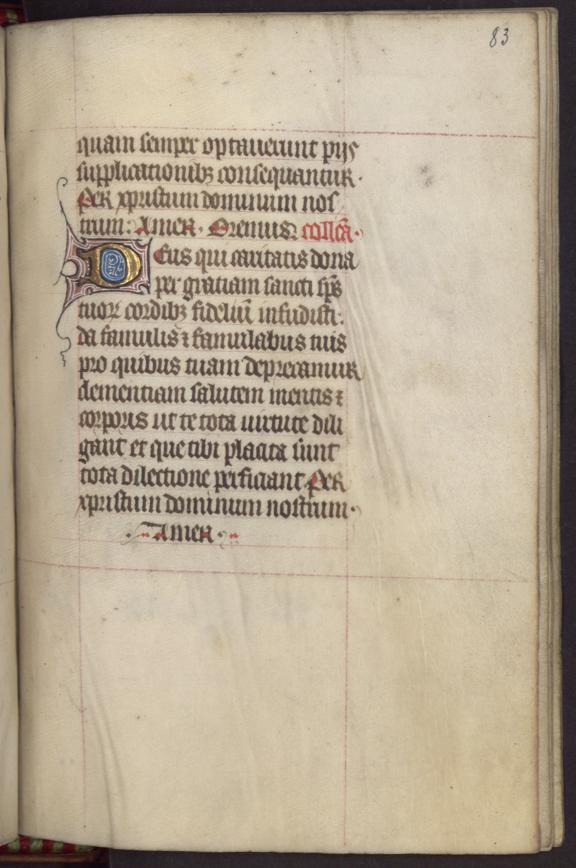 83
quam semper optauerunt pijs
supplicationibꝫ consequantur·
Per xpristum dominum nos
trum: Amen· Oremus colleȼ̄a·
Deus qui caritatis dona
per gratiam sancti sp̄s
tuoꝝ cordibꝫ fideliū infudisti:
da famulis ⁊ famulabus tuis
pro quibus tuam deprecamur
clementiam salutem mentis ⁊
corporis ut te tota uirtute dili
gant et que tibi placita sunt
tota dilectione perficiant Per
xpristum dominum nostrum·
Amen·